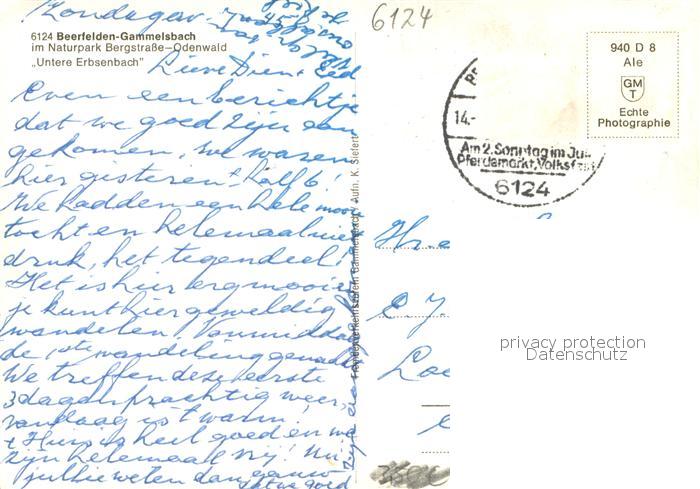 Zondagav.
6124 Beerfelden-Gammelsbach
im Naturpark Bergstraße-Odenwald
„Untere Erbsenbach"
Lieve Dien +
Even een berichtje
dat we goed zijn aan
gekomen, we waren
hier gisteren ± half 6!
We hadden een hele mooie
tocht en helemaal niet
druk, het tegendeel!
Het is hier erg mooi en
je kunt hier geweldig
wandelen. Vanmiddag
de 1ste wandeling gemaakt
We treffen deze eerste
3 dagen prachtig weer,
vandaag is 't warm!
+ Huis is heel goed en we
zijn helemaal vrij! Nu
jullie weten dan gauw
dat we goed
Fremdenverkehrsverein Gammelsbach / Aufn. K. Siefert
6124
940 D 8
Ale
GM
T
Echte
Photographie
14.-
Am 2. Sonntag im Juli
Pferdemarkt, Volksfest
6124
privacy protection
Datenschutz